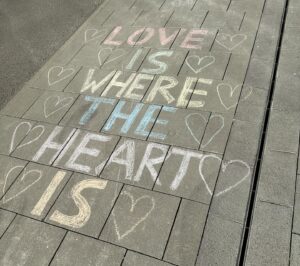 LOVE
IS
WHERE
THE
HEART
IS